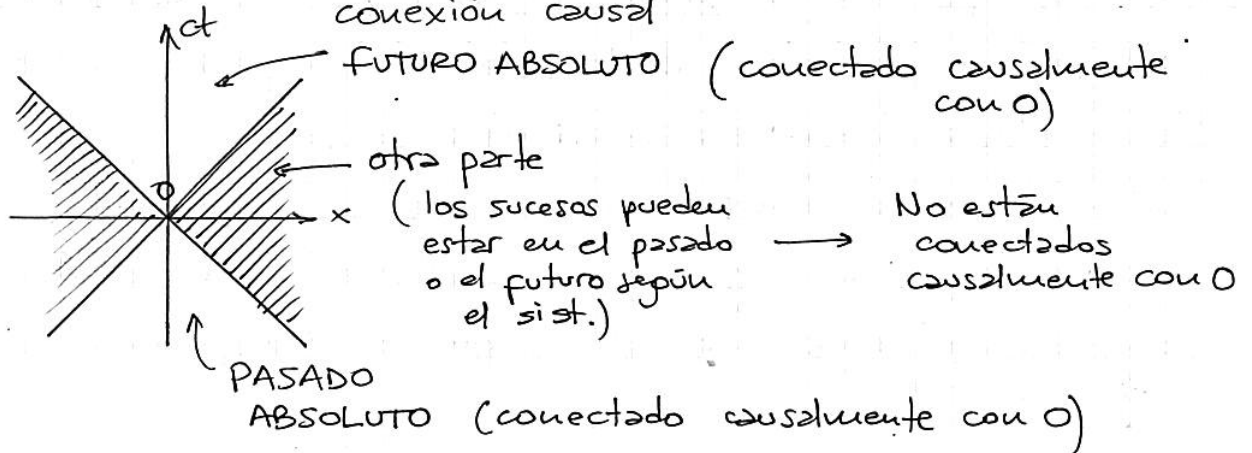 conexión causal
ct
FUTURO ABSOLUTO (conectado causalmente
con O)
otra parte
O
x
(los sucesos pueden
estar en el pasado
o el futuro según
el sist.)
No están
conectados
causalmente con O
PASADO
ABSOLUTO (conectado causalmente con O)